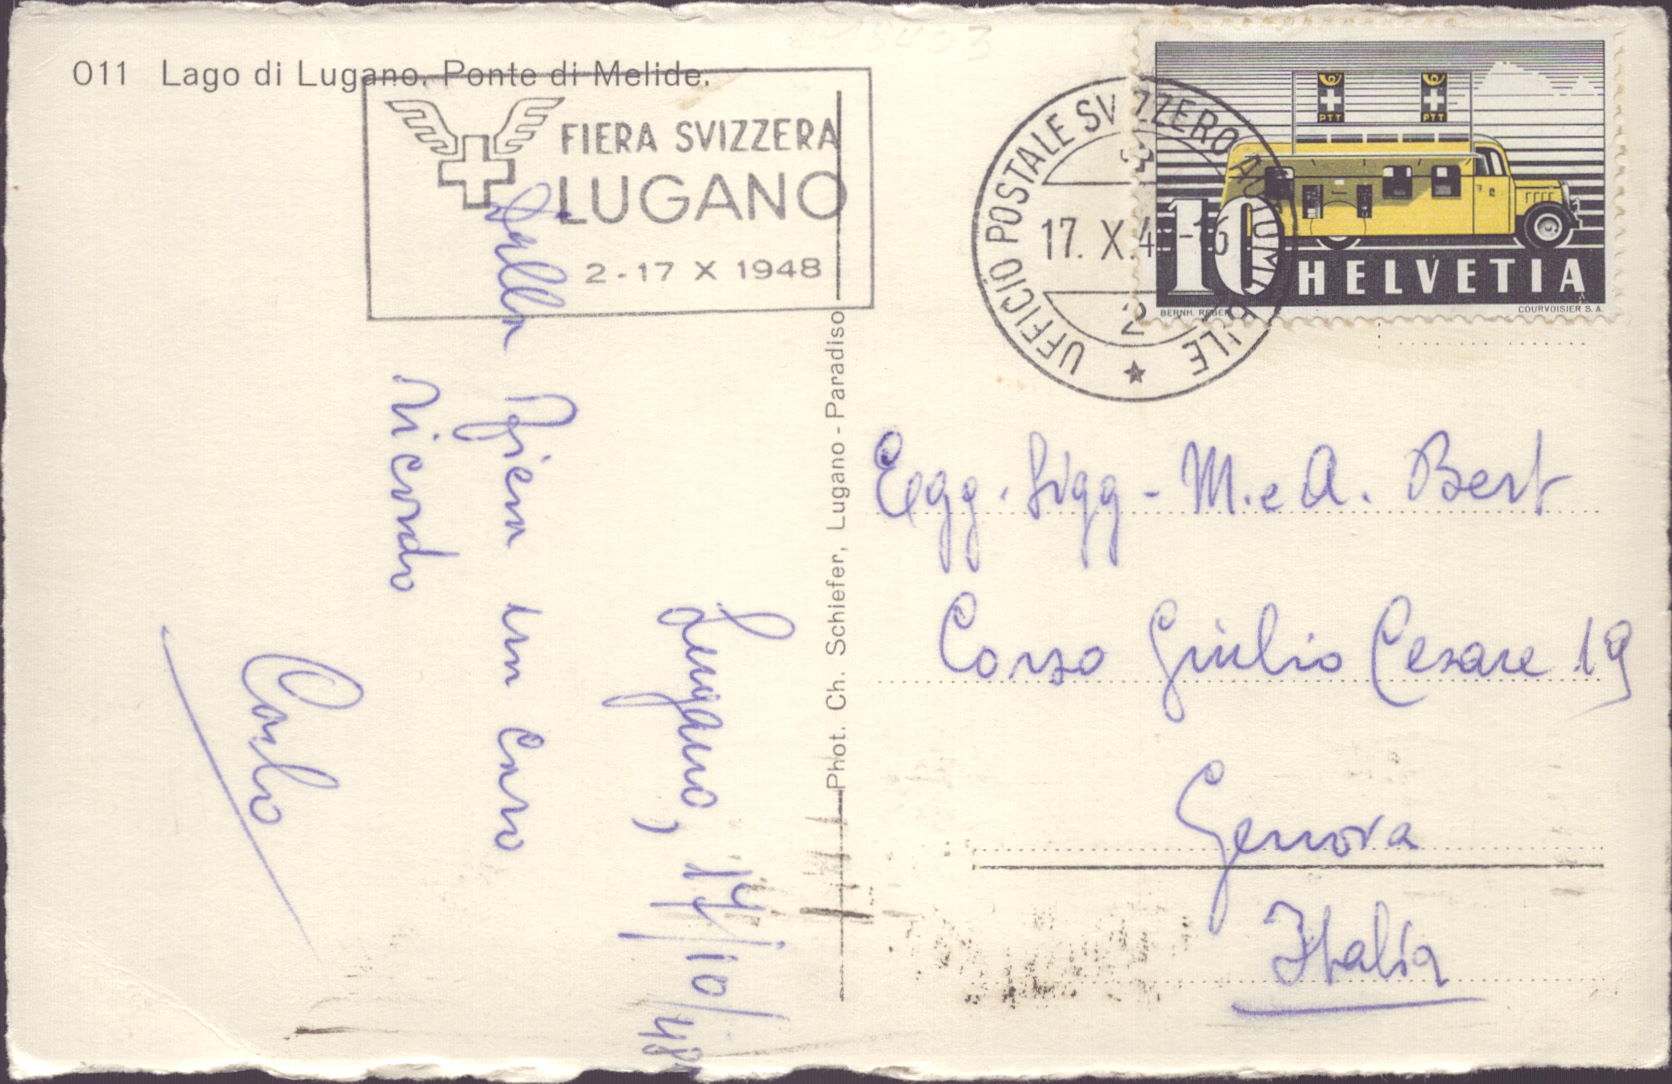 011 Lago di Lugano. Ponte di Melide.
FIERA SVIZZERA
LUGANO
2-17 X 1948
UFFICIO POSTALE SVIZZERO AUTOMOBILE
17. X.4 -16
2
PTT
PTT
10
HELVETIA
BERNH. REBER
COURVOISIER S.A.
Phot. Ch. Schiefer, Lugano - Paradiso
Lugano, 17/10/48
Dalla fiera un caro
ricordo
Carlo
Egg. Sigg - M. e A. Bert
Corso Giulio Cesare 19
Genova
Italia